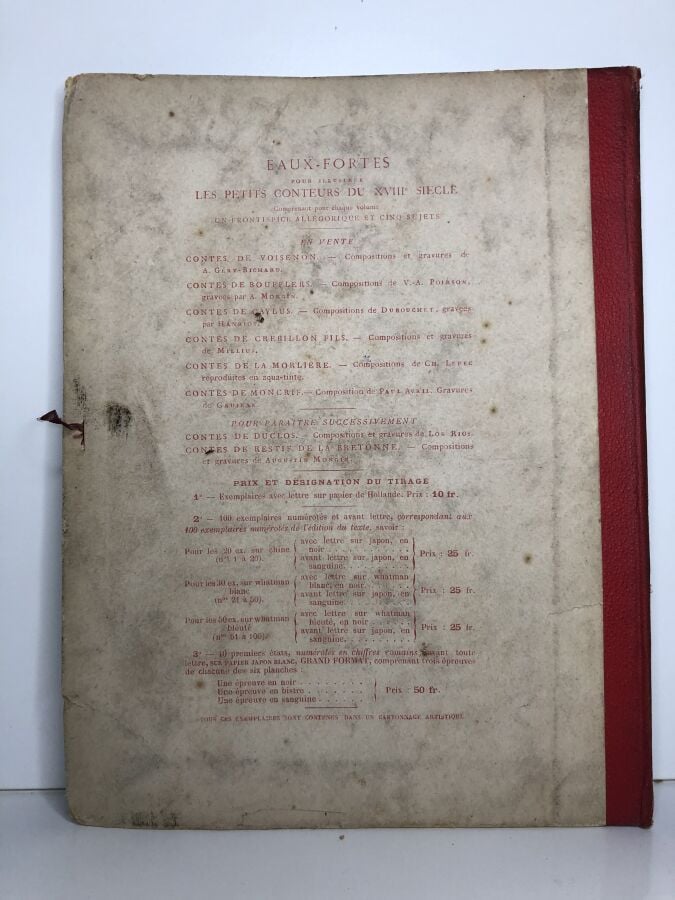 EAUX-FORTES
POUR ILLUSTRER
LES PETITS CONTEURS DU XVIIIe SIÈCLE
Comprenant pour chaque volume
UN FRONTISPICE ALLÉGORIQUE ET CINQ SUJETS
EN VENTE
CONTES DE VOISENON. — Compositions et gravures de
A. Géry-Bichard.
CONTES DE BOUFFLERS. — Compositions de V.-A. Poirson,
gravées par A. Mongin.
CONTES DE CAYLUS. — Compositions de Dubouchet, gravées
par Hanriot.
CONTES DE CRÉBILLON FILS. — Compositions et gravures
de Milius.
CONTES DE LA MORLIÈRE. — Compositions de Ch.
reproduites en aqua-tinte.
CONTES DE MONCRIF. — Composition de Paul Avril. Gravures
de Gaujean.
POUR PARAITRE SUCCESSIVEMENT
CONTES DE DUCLOS. — Compositions et gravures de Los Rios.
CONTES DE RESTIF DE LA BRETONNE. — Compositions
et gravures de Augustin Mongin.
PRIX ET DÉSIGNATION DU TIRAGE
1° — Exemplaires avec lettre sur papier de Hollande. Prix : 10 fr.
2° — 100 exemplaires numérotés et avant lettre, correspondant aux
100 exemplaires numérotés de l'édition du texte, savoir :
Pour les 20 ex. sur chine
(nos 1 à 20).
avec lettre sur japon, en
noir . . . . . . . . . .
avant lettre sur japon, en
sanguine. . . . . . . .
Prix : 25 fr.
Pour les 30 ex. sur whatman
blanc
(nos 21 à 50).
avec lettre sur whatman
blanc, en noir. . . . . .
avant lettre sur japon, en
sanguine . . . . . . . .
Prix : 25 fr.
Pour les 50 ex. sur whatman
bleuté
(nos 51 à 100).
avec lettre sur whatman
bleuté, en noir . . . . .
avant lettre sur japon, en
sanguine. . . . . . . .
Prix : 25 fr.
3° — 10 premiers états, numérotés en chiffres romains, avant toute
lettre, SUR PAPIER JAPON BLANC, GRAND FORMAT, comprenant trois épreuves
de chacune des six planches :
Une épreuve en noir . . . . . . . .
Une épreuve en bistre . . . . . . .
Une épreuve en sanguine . . . . . .
Prix : 50 fr.
TOUS CES EXEMPLAIRES SONT CONTENUS DANS UN CARTONNAGE ARTISTIQUE